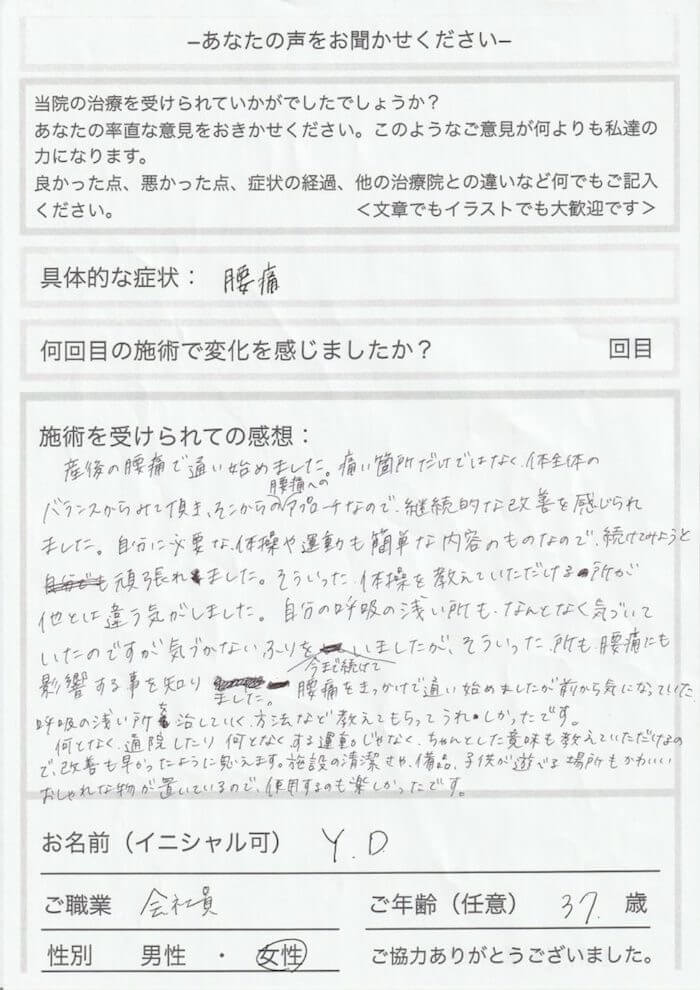 –あなたの声をお聞かせください–
当院の治療を受けられていかがでしたでしょうか？
あなたの率直な意見をおきかせください。このようなご意見が何よりも私達の
力になります。
良かった点、悪かった点、症状の経過、他の治療院との違いなど何でもご記入
ください。 ＜文章でもイラストでも大歓迎です＞
具体的な症状： 腰痛
何回目の施術で変化を感じましたか？ 回目
施術を受けられての感想：
産後の腰痛で通い始めました。痛い箇所だけではなく、体全体の
腰痛への
バランスからみて頂き、そこからのアプローチなので、継続的な改善を感じられ
ました。自分に必要な、体操や運動も簡単な内容のものなので、続けてみようと
頑張れました。そういった、体操を教えていただける所が
他とは違う気がしました。自分の呼吸の浅い所も、なんとなく気づいて
いたのですが気づかないふりを いましたが、そういった、所も、腰痛にも
今まで続けて
影響する事を知り ました。 腰痛をきっかけで通い始めましたが前から気になっていた
呼吸の浅い所を治していく、方法など教えてもらってうれしかったです。
何となく、通院したり何となくする運動じゃなく、ちゃんとした意味も教えていただけるの
で、改善も早かったように思えます。施設の清潔さや、備品、子供が遊べる場所もかわいい
おしゃれな物が置いているので、使用するのも楽しかったです。
お名前（イニシャル可） Y.D
ご職業 会社員 ご年齢（任意） 37. 歳
性別 男性 ・ 女性 ご協力ありがとうございました。